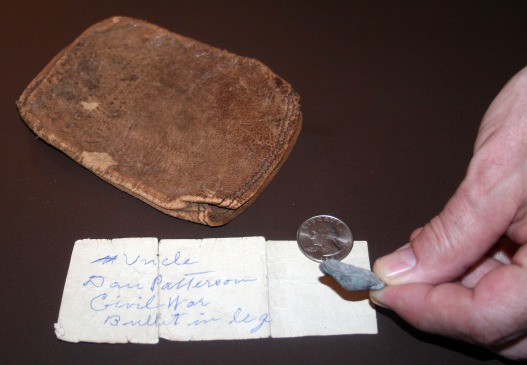 # Uncle
Dan Patterson
Civil War
Bullet in leg